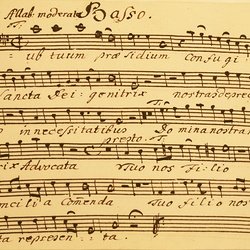 Allab: moderato Basso.
ub tuum præsidium Confugi
Sancta Dei-genitrix nostras depreca
in necessitatibus Do mina nostra
presto.
rix Advocata Tuo nos fi-lio
ncilia Comenda Tuo filio nos
ta represen-ta.